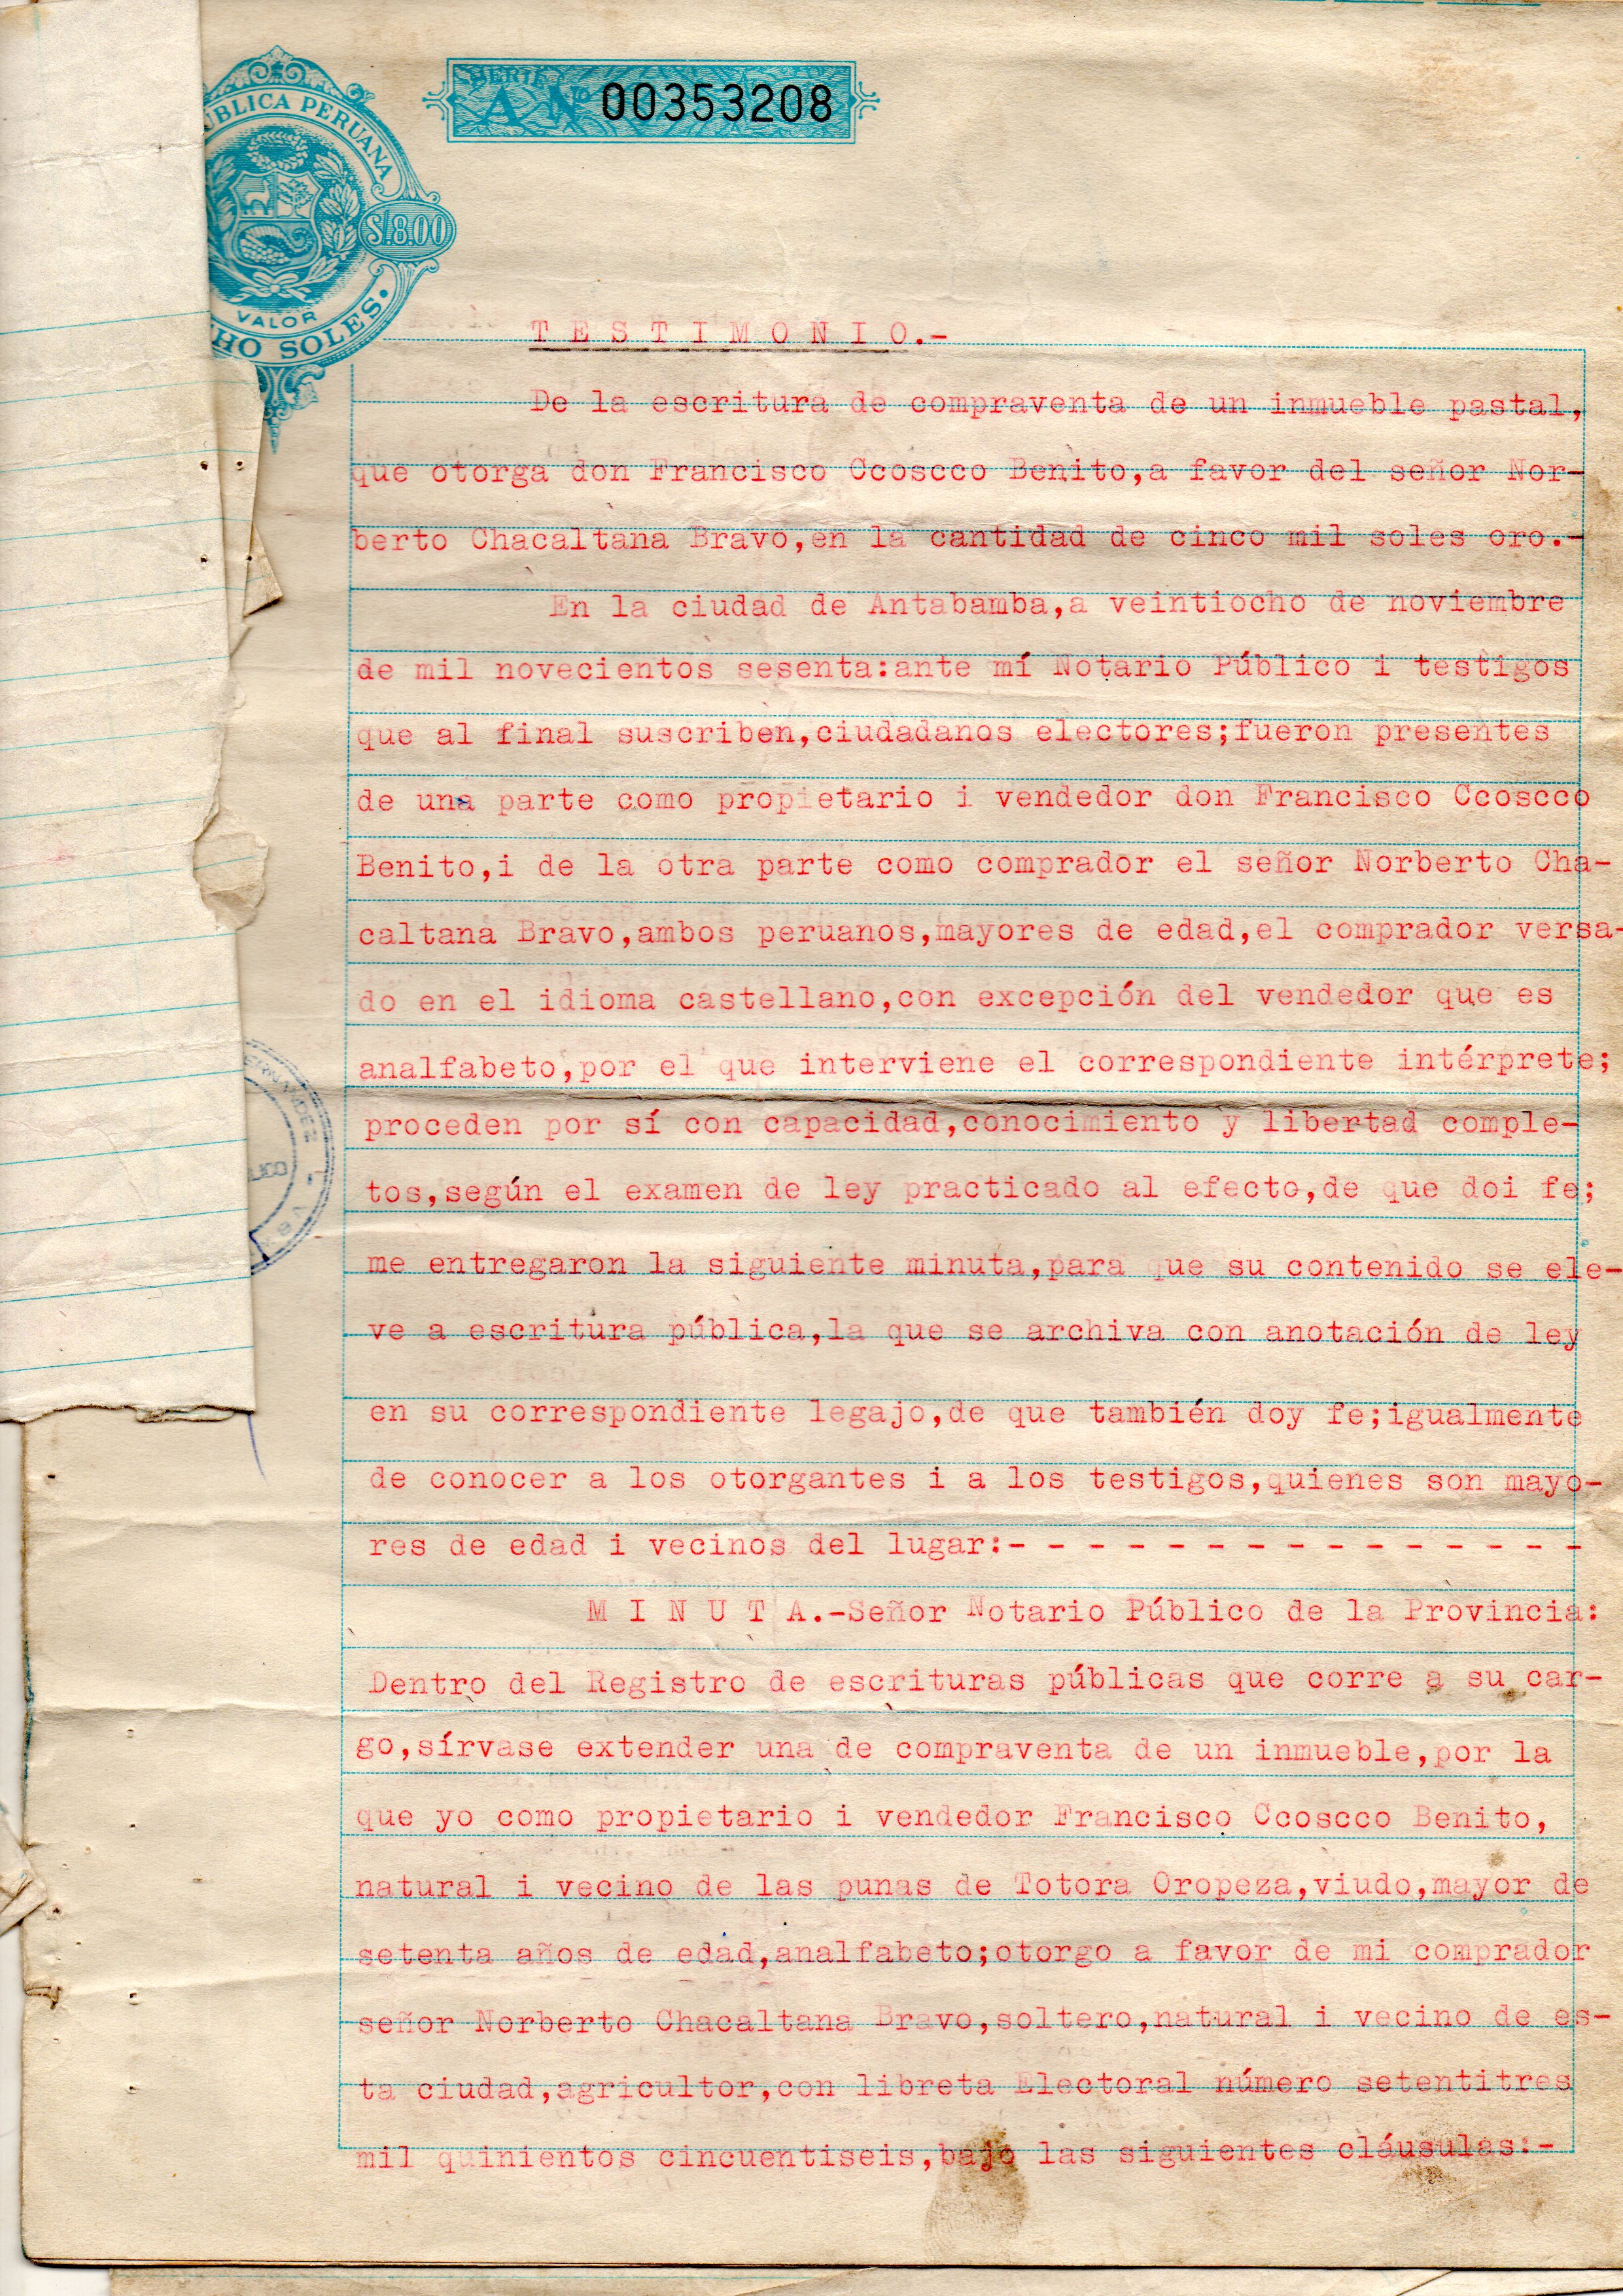 SERIE
A Nº 00353208
UBLICA PERUANA
S/.8.00
VALOR
HO SOLES.
T E S T I M O N I O.-
De la escritura de compraventa de un inmueble pastal,
que otorga don Francisco Ccoscco Benito,a favor del señor Nor-
berto Chacaltana Bravo,en la cantidad de cinco mil soles oro.-
En la ciudad de Antabamba,a veintiocho de noviembre
de mil novecientos sesenta:ante mí Notario Público i testigos
que al final suscriben,ciudadanos electores;fueron presentes
de una parte como propietario i vendedor don Francisco Ccoscco
Benito,i de la otra parte como comprador el señor Norberto Cha-
caltana Bravo,ambos peruanos,mayores de edad,el comprador versa-
do en el idioma castellano,con excepción del vendedor que es
analfabeto,por el que interviene el correspondiente intérprete;
proceden por sí con capacidad,conocimiento y libertad comple-
tos,según el examen de ley practicado al efecto,de que doi fe;
me entregaron la siguiente minuta,para que su contenido se ele-
ve a escritura pública,la que se archiva con anotación de ley
en su correspondiente legajo,de que también doy fe;igualmente
de conocer a los otorgantes i a los testigos,quienes son mayo-
res de edad i vecinos del lugar:- - - - - - - - - - - - - - -
M I N U T A.-Señor Notario Público de la Provincia:
Dentro del Registro de escrituras públicas que corre a su car-
go,sírvase extender una de compraventa de un inmueble,por la
que yo como propietario i vendedor Francisco Ccoscco Benito,
natural i vecino de las punas de Totora Oropeza,viudo,mayor de
setenta años de edad,analfabeto;otorgo a favor de mi comprador
señor Norberto Chacaltana Bravo,soltero,natural i vecino de es-
ta ciudad,agricultor,con libreta Electoral número setentitres
mil quinientos cincuentiseis,bajo las siguientes cláusulas:-